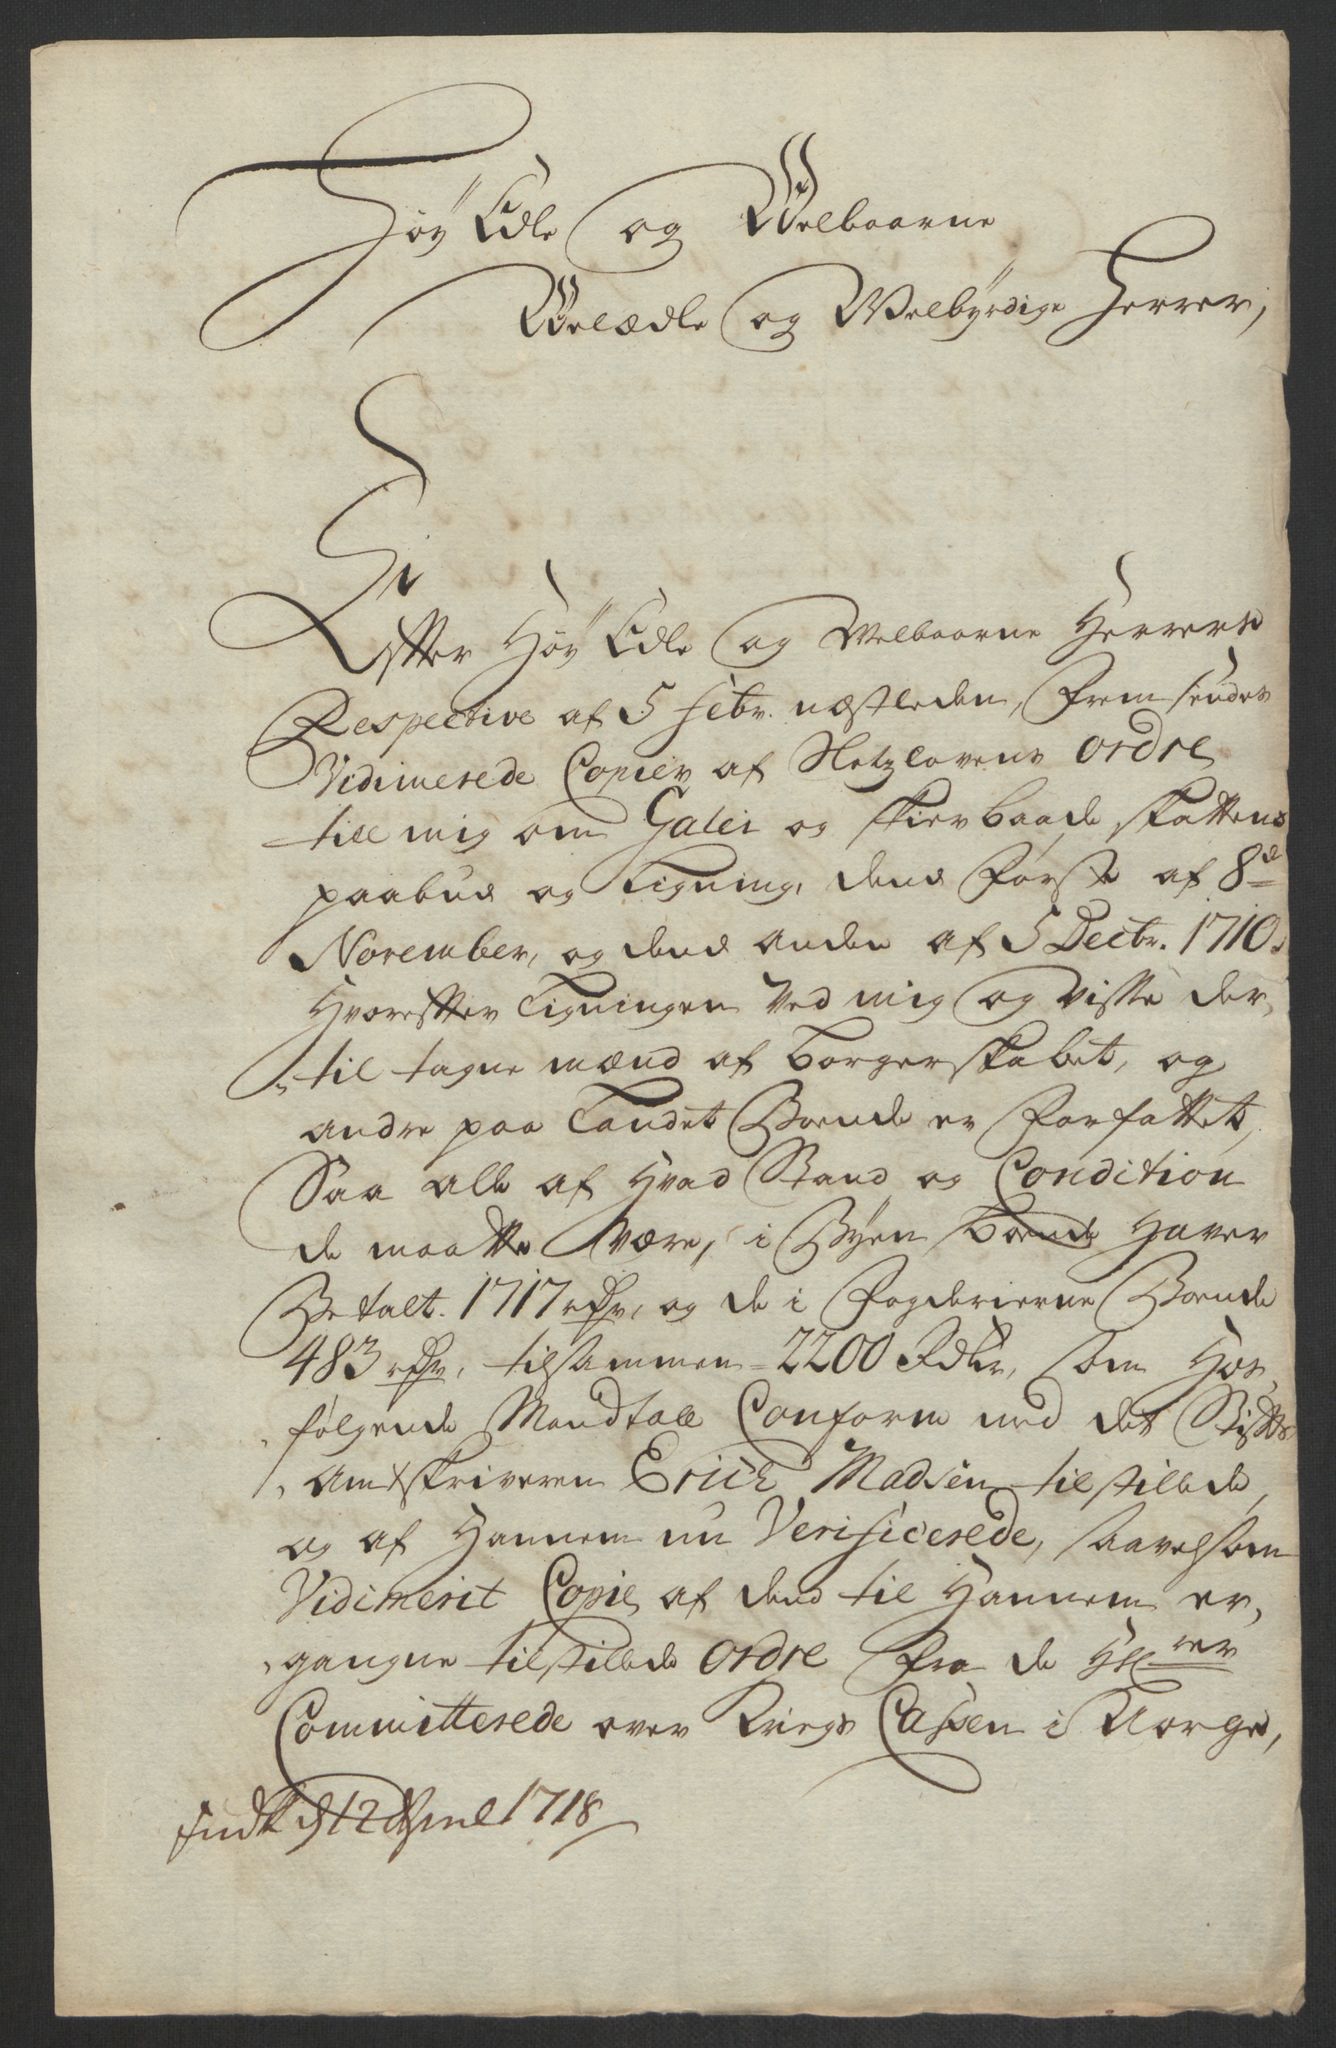 Høy Edle og Welbaarne
Welædle og Welbyrdige Herrer,
Effter Høy Edle og Welbaarne Herrers
Respective af 5 febr. næstleden, frem sendes
Vidimerede Copier af Slotzlovens ordre
till mig om Galei og Skiærbaads skattens
paabud og Ligning, dend første af 8de
November, og dend anden af 5 Decbr. 1710.
Hvoreffter Ligningen Ved mig og visse der,
,til tagne mænd af borgerskabet, og
andre paa Landet Boende er forfattet,
Saa alle af Hvad Stand og Condition
de maatte være, i Byen boende Haver
Betalt. 1717 rdr, og de i Fogderierne Boende
483 rdr, tilsammen 2200 Rdlr, som Hos,
,følgende Mandtall Conform med det Stiffts
,Amtskriveren Erich Madsen tilstillede
og af Hannem nu Verificerede, saavelsom
Vidimerit Copie af dend til Hannem er,
,gangne tilstillede ordre fra de Hrer
Committerede over Kriegs Cassen i Norge,
Indk d 12 April 1718